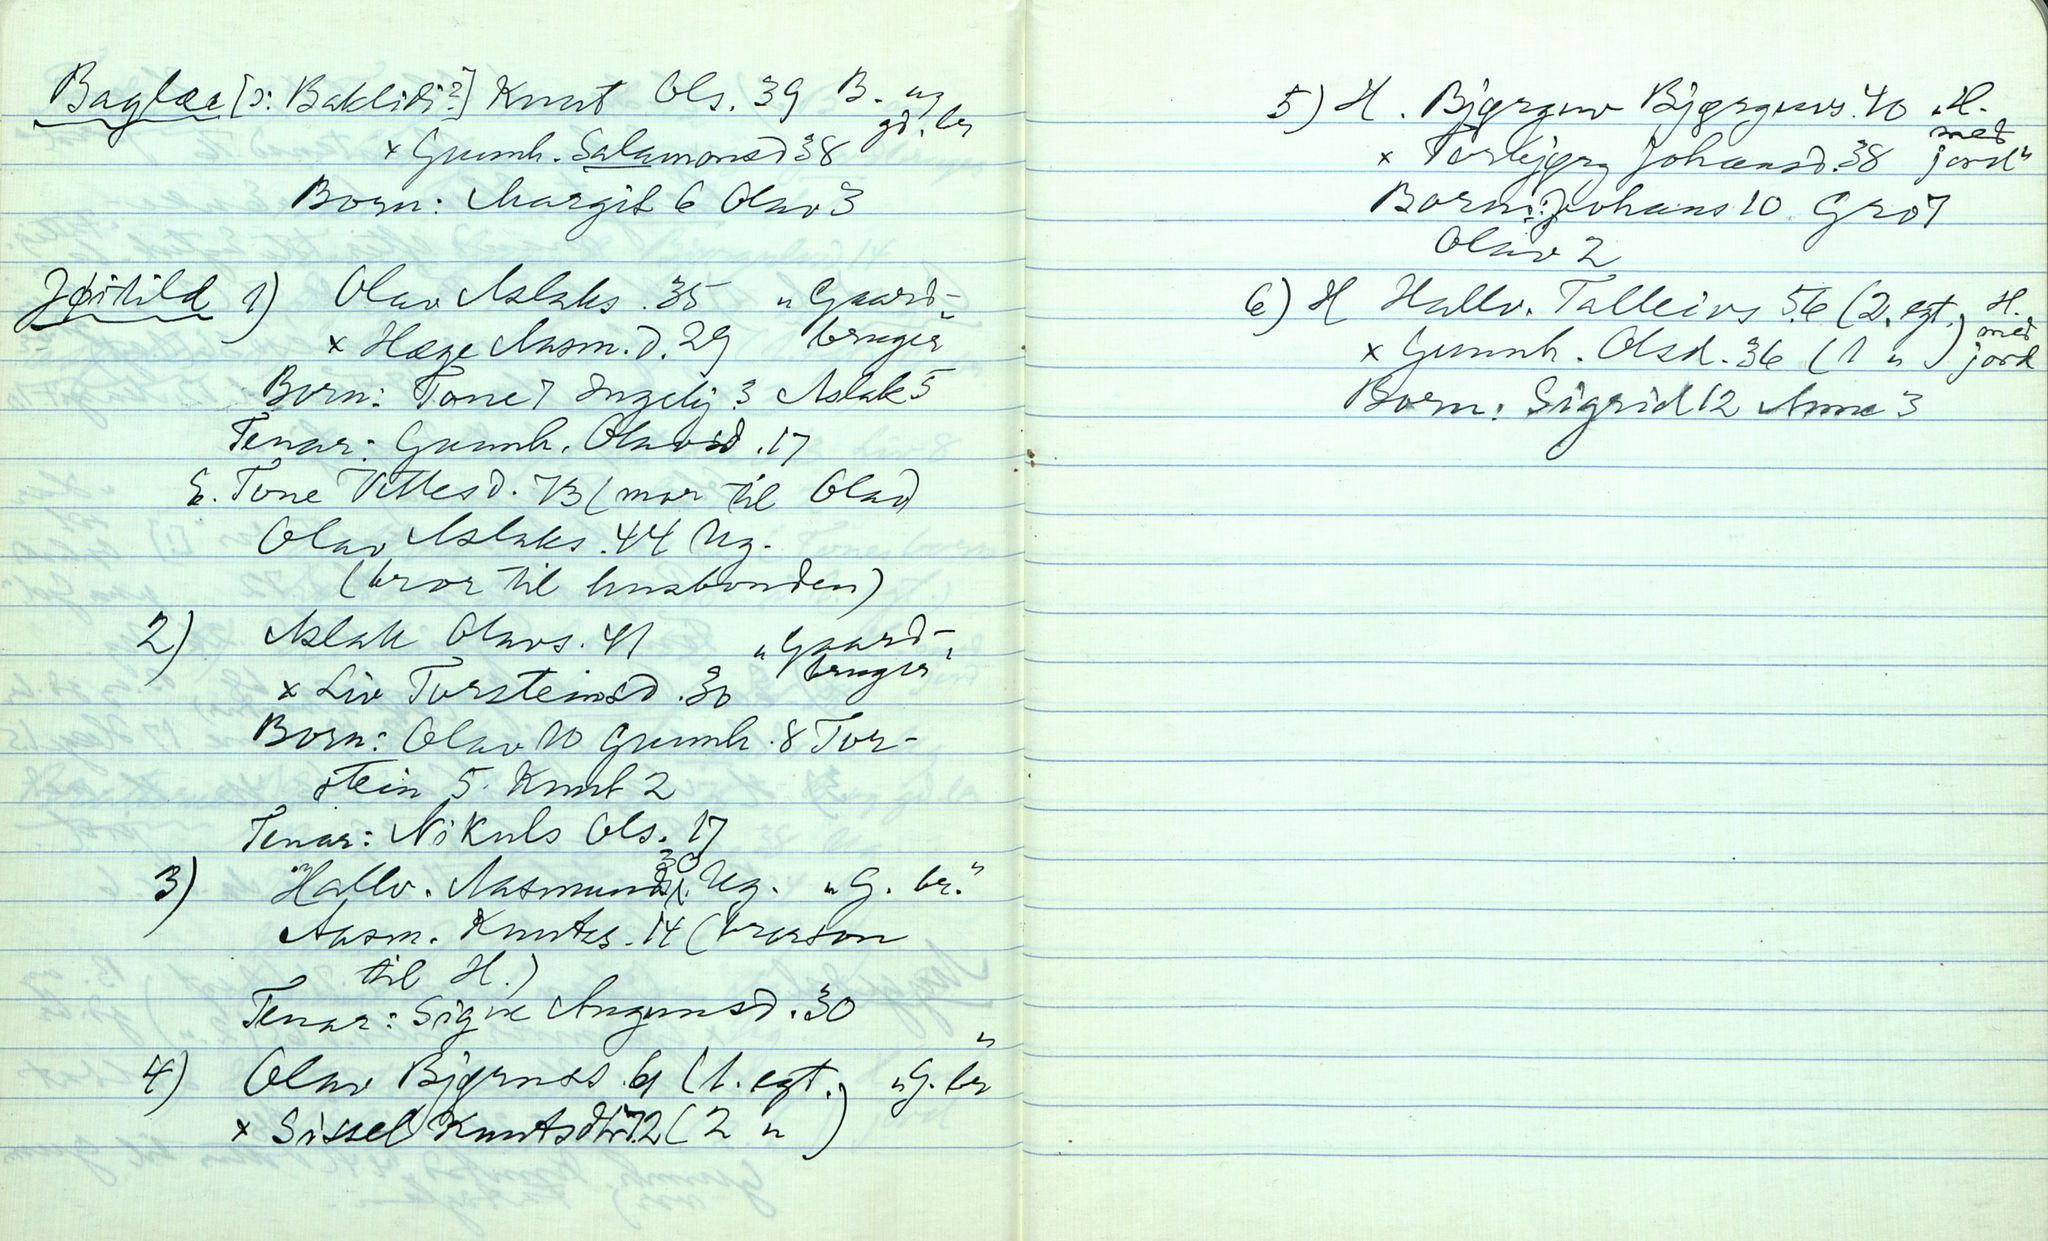 Baglee [ɔ: Baklidi?] Knut Ols. 39 B. og
gd.br
x Gunnh. Salamonsd 38
Born: Margit 6 Olav 3
1) Olav Aslaks. 35 "Gaard-
x Hæge Aasm.d. 29 bruger"
Born: Tone 7 Ingebj. 3 Aslak 5
Tenar: Gunnh. Olavsd. 17
E. Tone Vetlesd. 73 (mor til Olav
Olav Aslaks. 44 Ug.
(bror til husbonden)
2) Aslak Olavs. 41 "Gaard-
x Liv Torsteinsd. 30 bruger"
Born: Olav 10 Gunnh. 8 Tor-
stein 5. Knut 2
Tenar: Nikuls Ols. 17
3) Hallv. Aasmunds. 30 Ug. "G. br."
Aasm. Knuts. 14 (brorson
til H.)
Tenar: Signe Augunsd. 30
4) Olav Bjørnss. 61 (1. egt. "G. br"
x Sissel Knutsdtr 72 (2 " )
5) H. Bjørguv Bjørguvs. 40 "H.
med
x Torbjørg Johansd. 38 jord"
Born: Johans 10 Gro 7
Olav 2
6) H Hallv. Talleivs 56 (2. egt. H.
med
x Gunnh. Olsd. 36 (1 " ) jord
Born: Sigrid 12 Anne 3